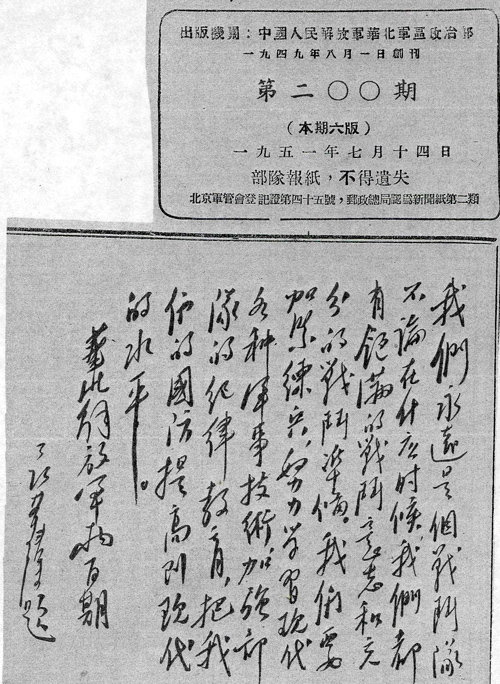 出版機關：中國人民解放軍華北軍區政治部
一九四九年八月一日創刊
第二〇〇期
（本期六版）
一九五一年七月十四日
部隊報紙，不得遺失
北京軍管會登記證第四十五號，郵政總局認爲新聞紙第二類
我們永遠是個戰鬥隊
不論在什么时候，我們都
有飽滿的戰鬥意志和充
分的戰鬥準備。我們要
加緊練兵，努力学習現代
各种軍事技術，加強部
隊的纪律教育，把我
们的國防提高到現代
的水平。
華北解放軍报百期
題